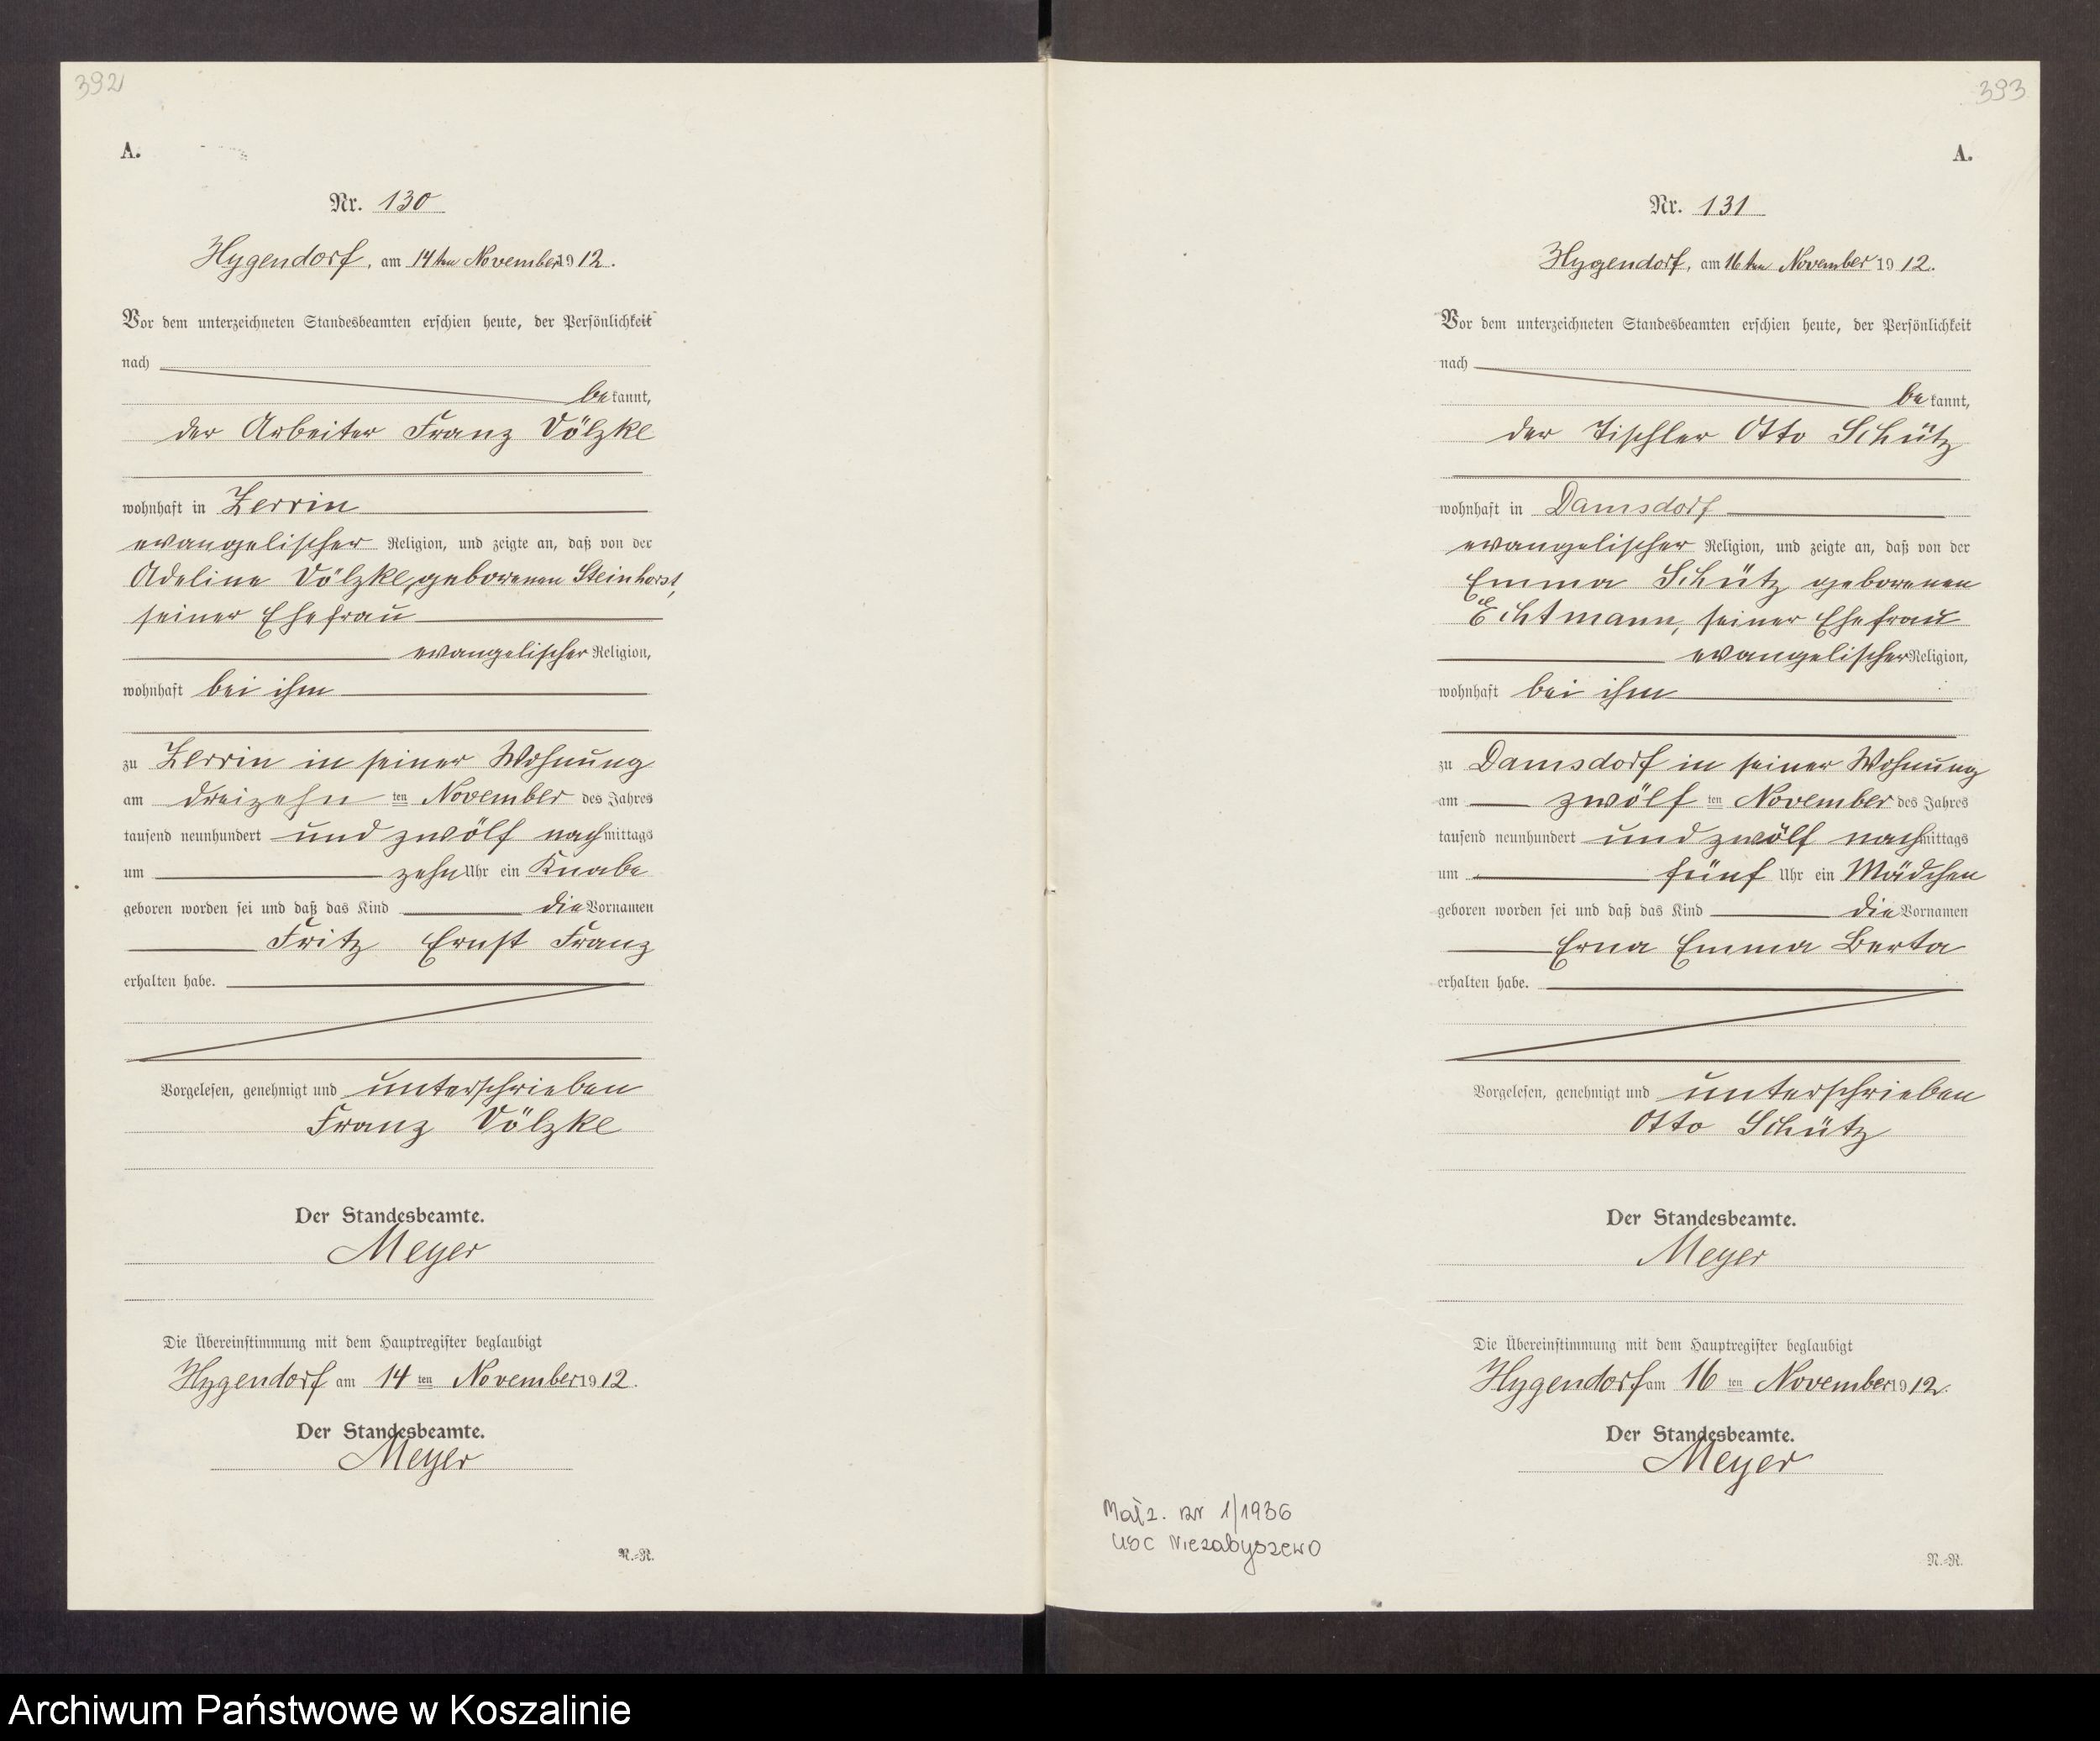 392
A.
Nr. 130
Hygendorf, am 14ten November 1912.
Vor dem unterzeichneten Standesbeamten erschien heute, der Persönlichkeit
nach
bekannt,
der Arbeiter Franz Völzke
wohnhaft in Zerrin
evangelischer Religion, und zeigte an, daß von der
Adeline Völzke, geborenen Steinhorst,
seiner Ehefrau
evangelischer Religion,
wohnhaft bei ihm
zu Zerrin in seiner Wohnung
am dreizehn ten November des Jahres
tausend neunhundert und zwölf nachmittags
um zehn Uhr ein Knabe
geboren worden sei und daß das Kind die Vornamen
Fritz Ernst Franz
erhalten habe.
Vorgelesen, genehmigt und unterschrieben
Franz Völzke
Der Standesbeamte.
Meyer
Die Übereinstimmung mit dem Hauptregister beglaubigt
Hygendorf am 14 ten November 1912.
Der Standesbeamte.
Meyer
N.-R.
393
A.
Nr. 131
Hygendorf, am 16ten November 1912.
Vor dem unterzeichneten Standesbeamten erschien heute, der Persönlichkeit
nach
bekannt,
der Tischler Otto Schütz
wohnhaft in Damsdorf
evangelischer Religion, und zeigte an, daß von der
Emma Schütz geborenen
Echtmann, seiner Ehefrau
evangelischer Religion,
wohnhaft bei ihm
zu Damsdorf in seiner Wohnung
am zwölf ten November des Jahres
tausend neunhundert und zwölf nachmittags
um fünf Uhr ein Mädchen
geboren worden sei und daß das Kind die Vornamen
Erna Emma Berta
erhalten habe.
Vorgelesen, genehmigt und unterschrieben
Otto Schütz
Der Standesbeamte.
Meyer
Die Übereinstimmung mit dem Hauptregister beglaubigt
Hygendorf am 16 ten November 1912.
Der Standesbeamte.
Meyer
Małż. nr 1/1936
USC Niezabyszewo
N.-R.
Archiwum Państwowe w Koszalinie